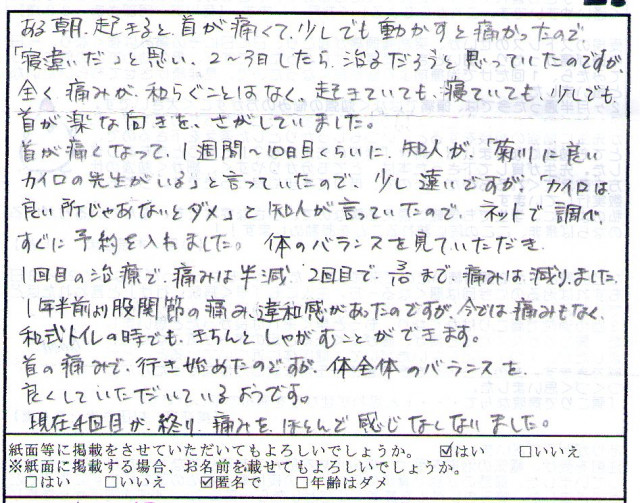 ある朝、起きると、首が痛くて、少しでも動かすと痛かったので、
「寝違いだ」と思い、2～3日したら、治るだろうと思っていたのですが、
全く痛みが、和らぐことはなく、起きていても、寝ていても、少しでも、
首が楽な向きを、さがしていました。
首が痛くなって、1週間～10日目くらいに、知人が、「菊川に良い
カイロの先生がいる」と言っていたので、少し遠いですが、「カイロは
良い所じゃあないとダメ」と知人が言っていたので、ネットで調べ、
すぐに予約を入れました。体のバランスを見ていただき、
1回目の治療で、痛みは半減、2回目で、3/10まで、痛みは減りました。
1年半前より股関節の痛み、違和感があったのですが、今では痛みもなく、
和式トイレの時でも、きちんとしゃがむことができます。
首の痛みで、行き始めたのですが、体全体のバランスを、
良くしていただいているようです。
現在4回目が、終り、痛みを、ほとんど感じなしないました。
紙面等に掲載をさせていただいてもよろしいでしょうか。 ☑はい □いいえ
※紙面に掲載する場合、お名前を載せてもよろしいでしょうか。
□はい □いいえ ☑匿名で □年齢はダメ